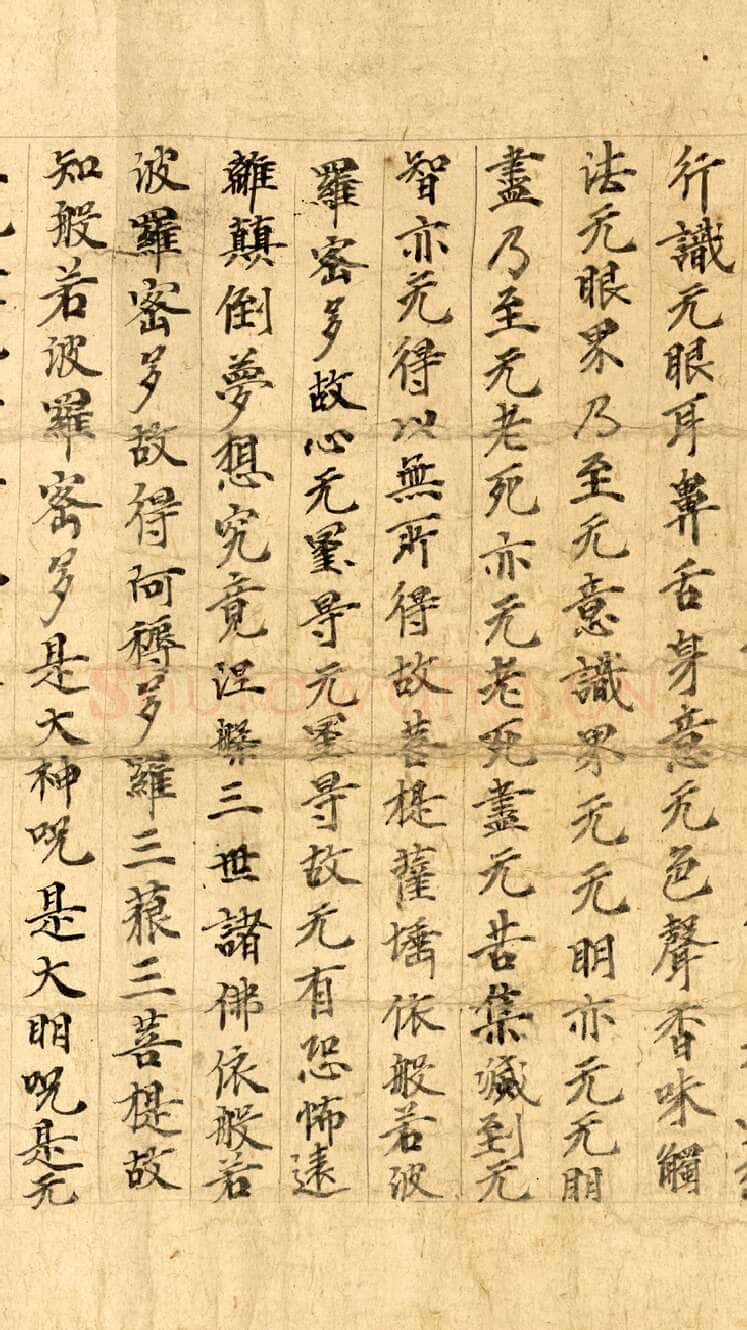 行識无眼耳鼻舌身意无色聲香味觸
法无眼界乃至无意識界无无明亦无无明
盡乃至无老死亦无老死盡无苦集滅到无
智亦无得以無所得故菩提薩埵依般若波
羅蜜多故心无罣㝵无罣㝵故无有恐怖遠
離顛倒夢想究竟涅槃三世諸佛依般若
波羅蜜多故得阿耨多羅三藐三菩提故
知般若波羅蜜多是大神呪是大明呪是无